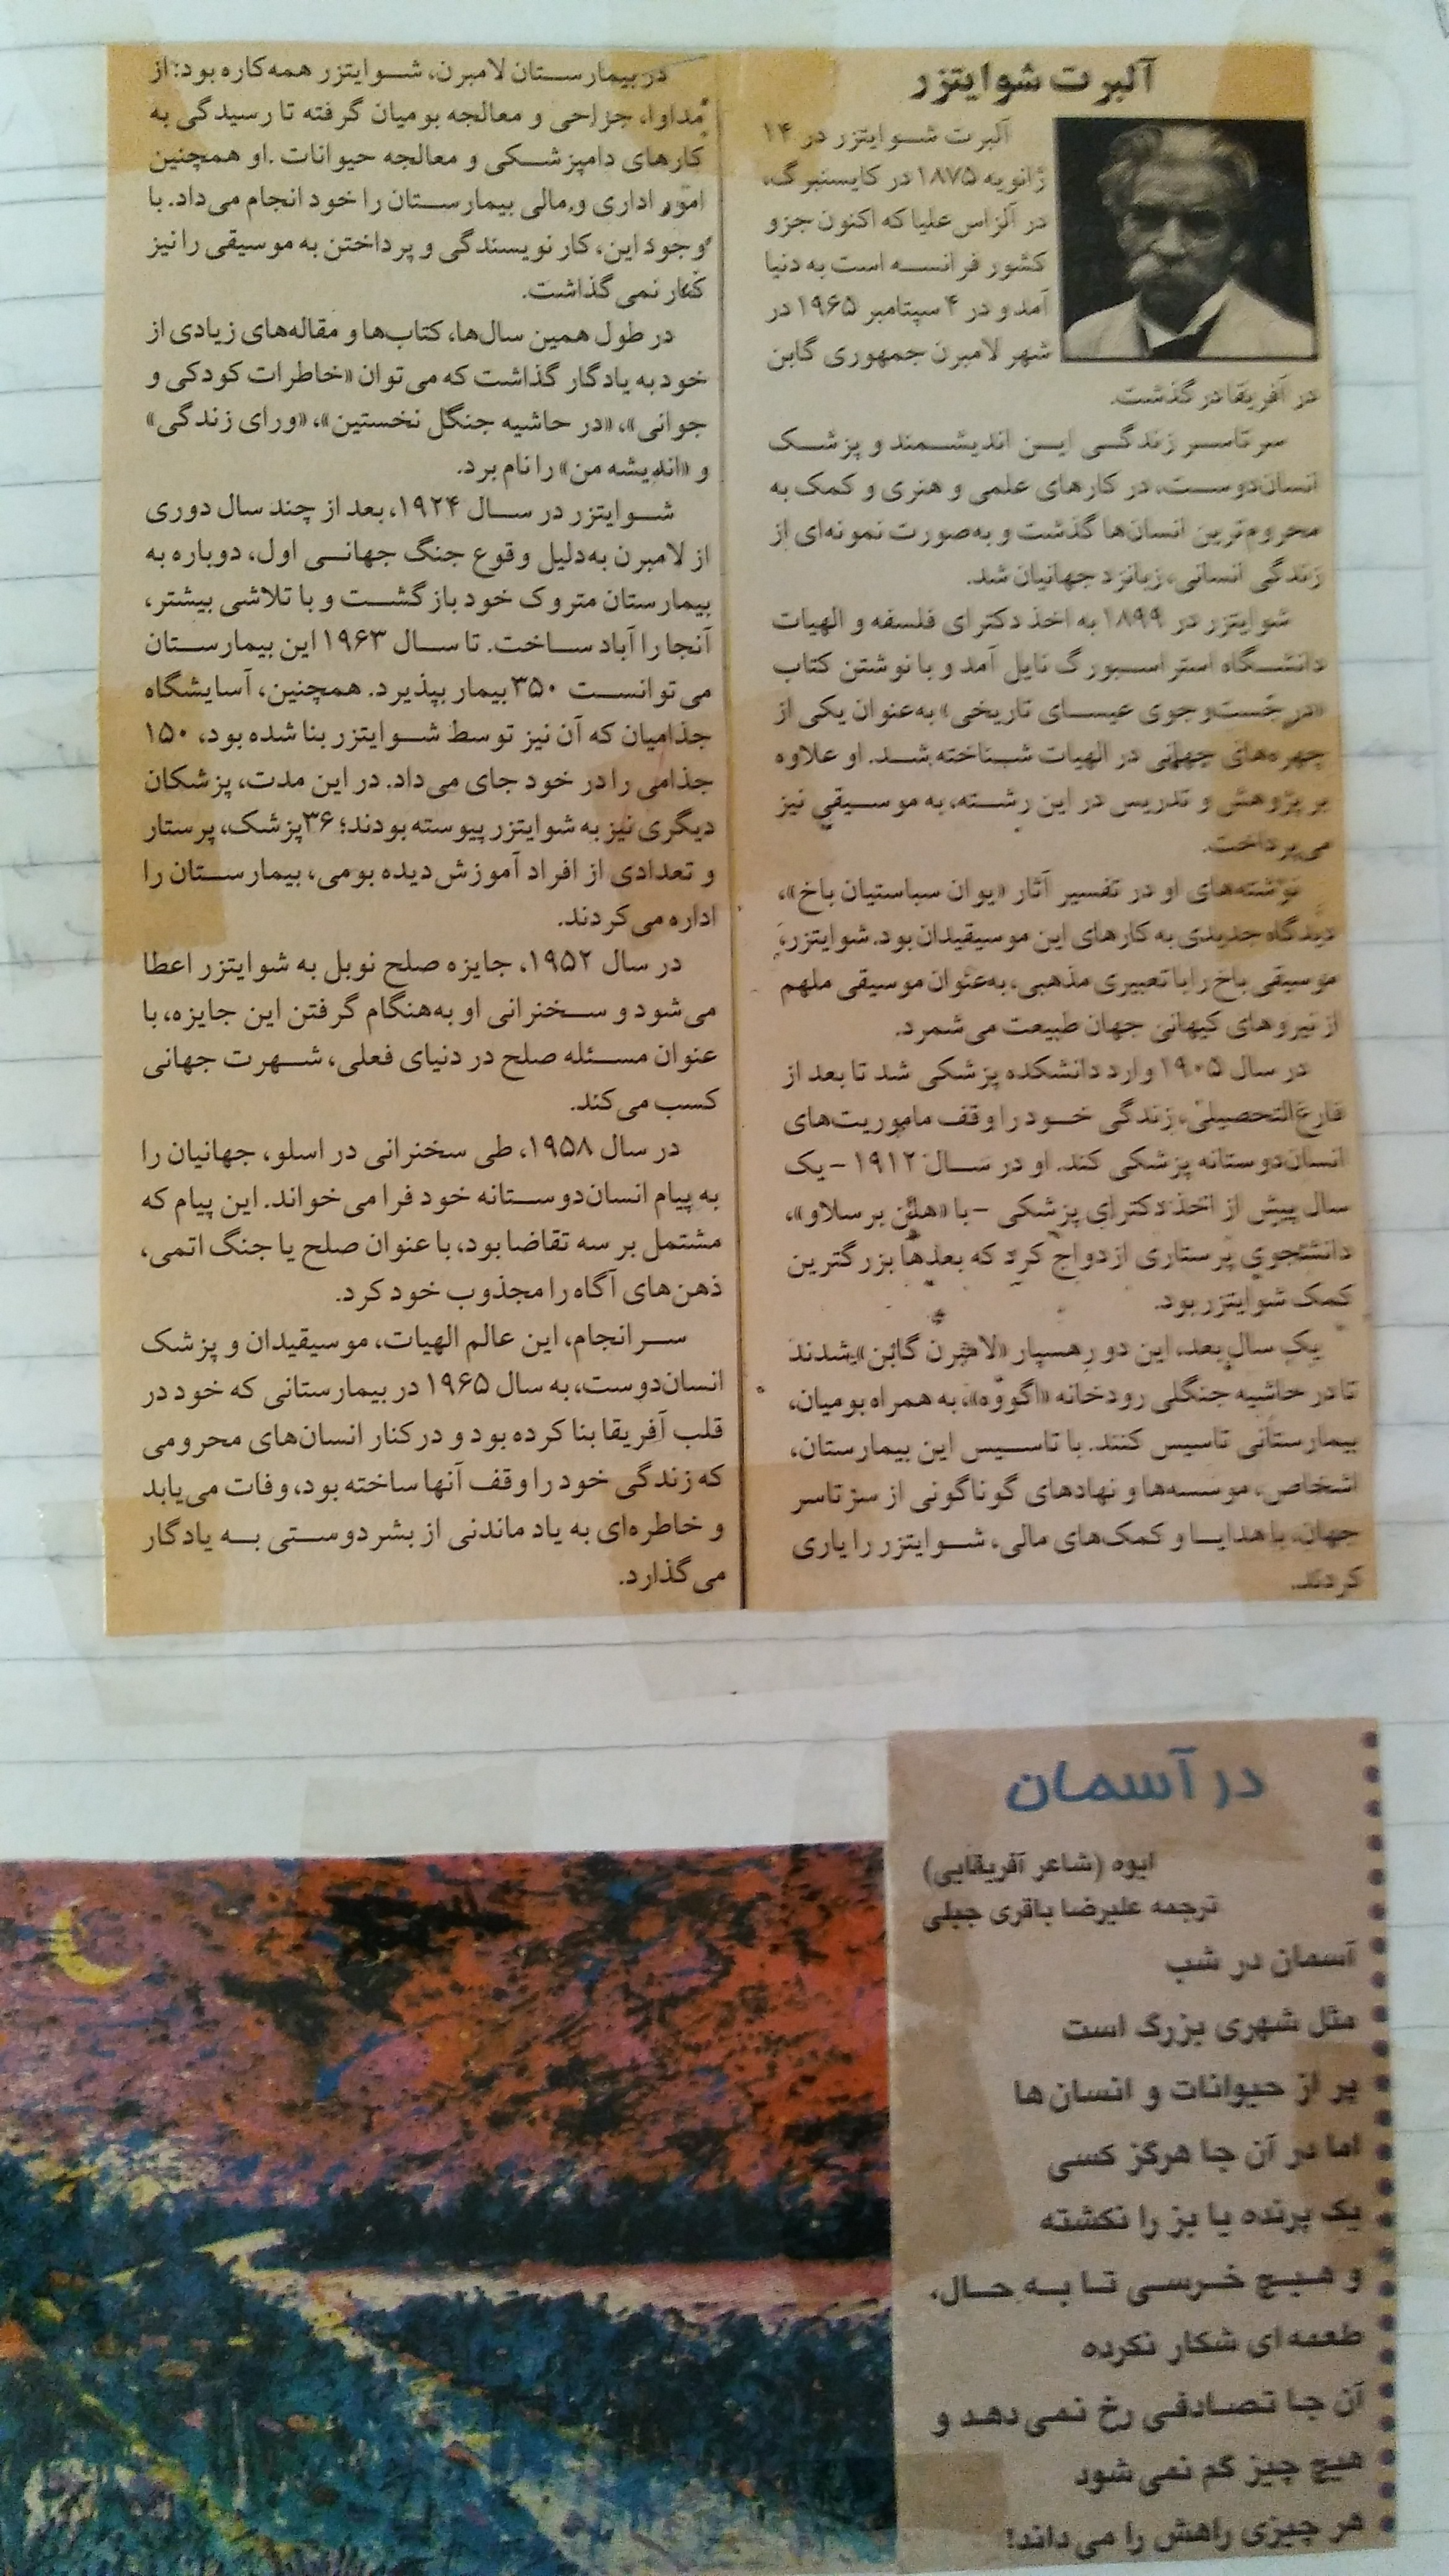 آلبرت شوایتزر
آلبرت شوایتزر در ۱۴
ژانویه ۱۸۷۵ در کایسنبرگ،
در آلزاس علیا که اکنون جزو
کشور فرانسه است به دنیا
آمد و در ۴ سپتامبر ۱۹۶۵ در
شهر لامبرن جمهوری گابن
در آفریقا در گذشت.
سرتاسر زندگی این اندیشمند و پزشک
انسان‌دوست، در کارهای علمی و هنری و کمک به
محروم‌ترین انسان‌ها گذشت و به‌صورت نمونه‌ای از
زندگی انسانی، زبانزد جهانیان شد.
شوایتزر در ۱۸۹۹ به اخذ دکترای فلسفه و الهیات
دانشگاه استراسبورگ نایل آمد و با نوشتن کتاب
«در جُست‌وجوی عیسای تاریخی» به‌عنوان یکی از
چهره‌های جهانی در الهیات شناخته شد. او علاوه
بر پژوهش و تدریس در این رشته، به موسیقی نیز
می‌پرداخت.
نوشته‌های او در تفسیر آثار «یوان سباستیان باخ»،
دیدگاه جدیدی به کارهای این موسیقیدان بود. شوایتزر،
موسیقی باخ را با تعبیری مذهبی، به‌عنوان موسیقی ملهم
از نیروهای کیهانی جهان طبیعت می‌شمرد.
در سال ۱۹۰۵ وارد دانشکده پزشکی شد تا بعد از
فارغ‌التحصیلی، زندگی خود را وقف ماموریت‌های
انسان‌دوستانه پزشکی کند. او در سال ۱۹۱۲ - یک
سال پیش از اخذ دکترای پزشکی - با «هلن برسلاو»،
دانشجوی پرستاری ازدواج کرد که بعدها بزرگترین
کمک شوایتزر بود.
یک سال بعد، این دو رهسپار «لامبرن گابن» شدند
تا در حاشیه جنگلی رودخانه «اگووه»، به همراه بومیان،
بیمارستانی تاسیس کنند. با تاسیس این بیمارستان،
اشخاص، موسسه‌ها و نهادهای گوناگونی از سرتاسر
جهان، با هدایا و کمک‌های مالی، شوایتزر را یاری
کردند.
در بیمارستان لامبرن، شوایتزر همه‌کاره بود: از
مداوا، جراحی و معالجه بومیان گرفته تا رسیدگی به
کارهای دامپزشکی و معالجه حیوانات. او همچنین
امور اداری و مالی بیمارستان را خود انجام می‌داد. با
وجود این، کار نویسندگی و پرداختن به موسیقی را نیز
کنار نمی‌گذاشت.
در طول همین سال‌ها، کتاب‌ها و مقاله‌های زیادی از
خود به یادگار گذاشت که می‌توان «خاطرات کودکی و
جوانی»، «در حاشیه جنگل نخستین»، «ورای زندگی»
و «اندیشه من» را نام برد.
شوایتزر در سال ۱۹۲۴، بعد از چند سال دوری
از لامبرن به‌دلیل وقوع جنگ جهانی اول، دوباره به
بیمارستان متروک خود بازگشت و با تلاشی بیشتر،
آنجا را آباد ساخت. تا سال ۱۹۶۳ این بیمارستان
می‌توانست ۳۵۰ بیمار بپذیرد. همچنین، آسایشگاه
جذامیان که آن نیز توسط شوایتزر بنا شده بود، ۱۵۰
جذامی را در خود جای می‌داد. در این مدت، پزشکان
دیگری نیز به شوایتزر پیوسته بودند؛ ۳۶ پزشک، پرستار
و تعدادی از افراد آموزش‌دیده بومی، بیمارستان را
اداره می‌کردند.
در سال ۱۹۵۲، جایزه صلح نوبل به شوایتزر اعطا
می‌شود و سخنرانی او به‌هنگام گرفتن این جایزه، با
عنوان مسئله صلح در دنیای فعلی، شهرت جهانی
کسب می‌کند.
در سال ۱۹۵۸، طی سخنرانی در اسلو، جهانیان را
به پیام انسان‌دوستانه خود فرا می‌خواند. این پیام که
مشتمل بر سه تقاضا بود، با عنوان صلح یا جنگ اتمی،
ذهن‌های آگاه را مجذوب خود کرد.
سرانجام، این عالم الهیات، موسیقیدان و پزشک
انسان‌دوست، به سال ۱۹۶۵ در بیمارستانی که خود در
قلب آفریقا بنا کرده بود و در کنار انسان‌های محرومی
که زندگی خود را وقف آنها ساخته بود، وفات می‌یابد
و خاطره‌ای به یاد ماندنی از بشردوستی به یادگار
می‌گذارد.
در آسمان
ایوه (شاعر آفریقایی)
ترجمه علیرضا باقری جبلی
آسمان در شب
مثل شهری بزرگ است
پر از حیوانات و انسان‌ها
اما در آن جا هرگز کسی
یک پرنده یا بز را نکشته
و هیچ خرسی تا به حال،
طعمه‌ای شکار نکرده
آن جا تصادفی رخ نمی‌دهد و
هیچ چیز گم نمی‌شود
هر چیزی راهش را می‌داند!